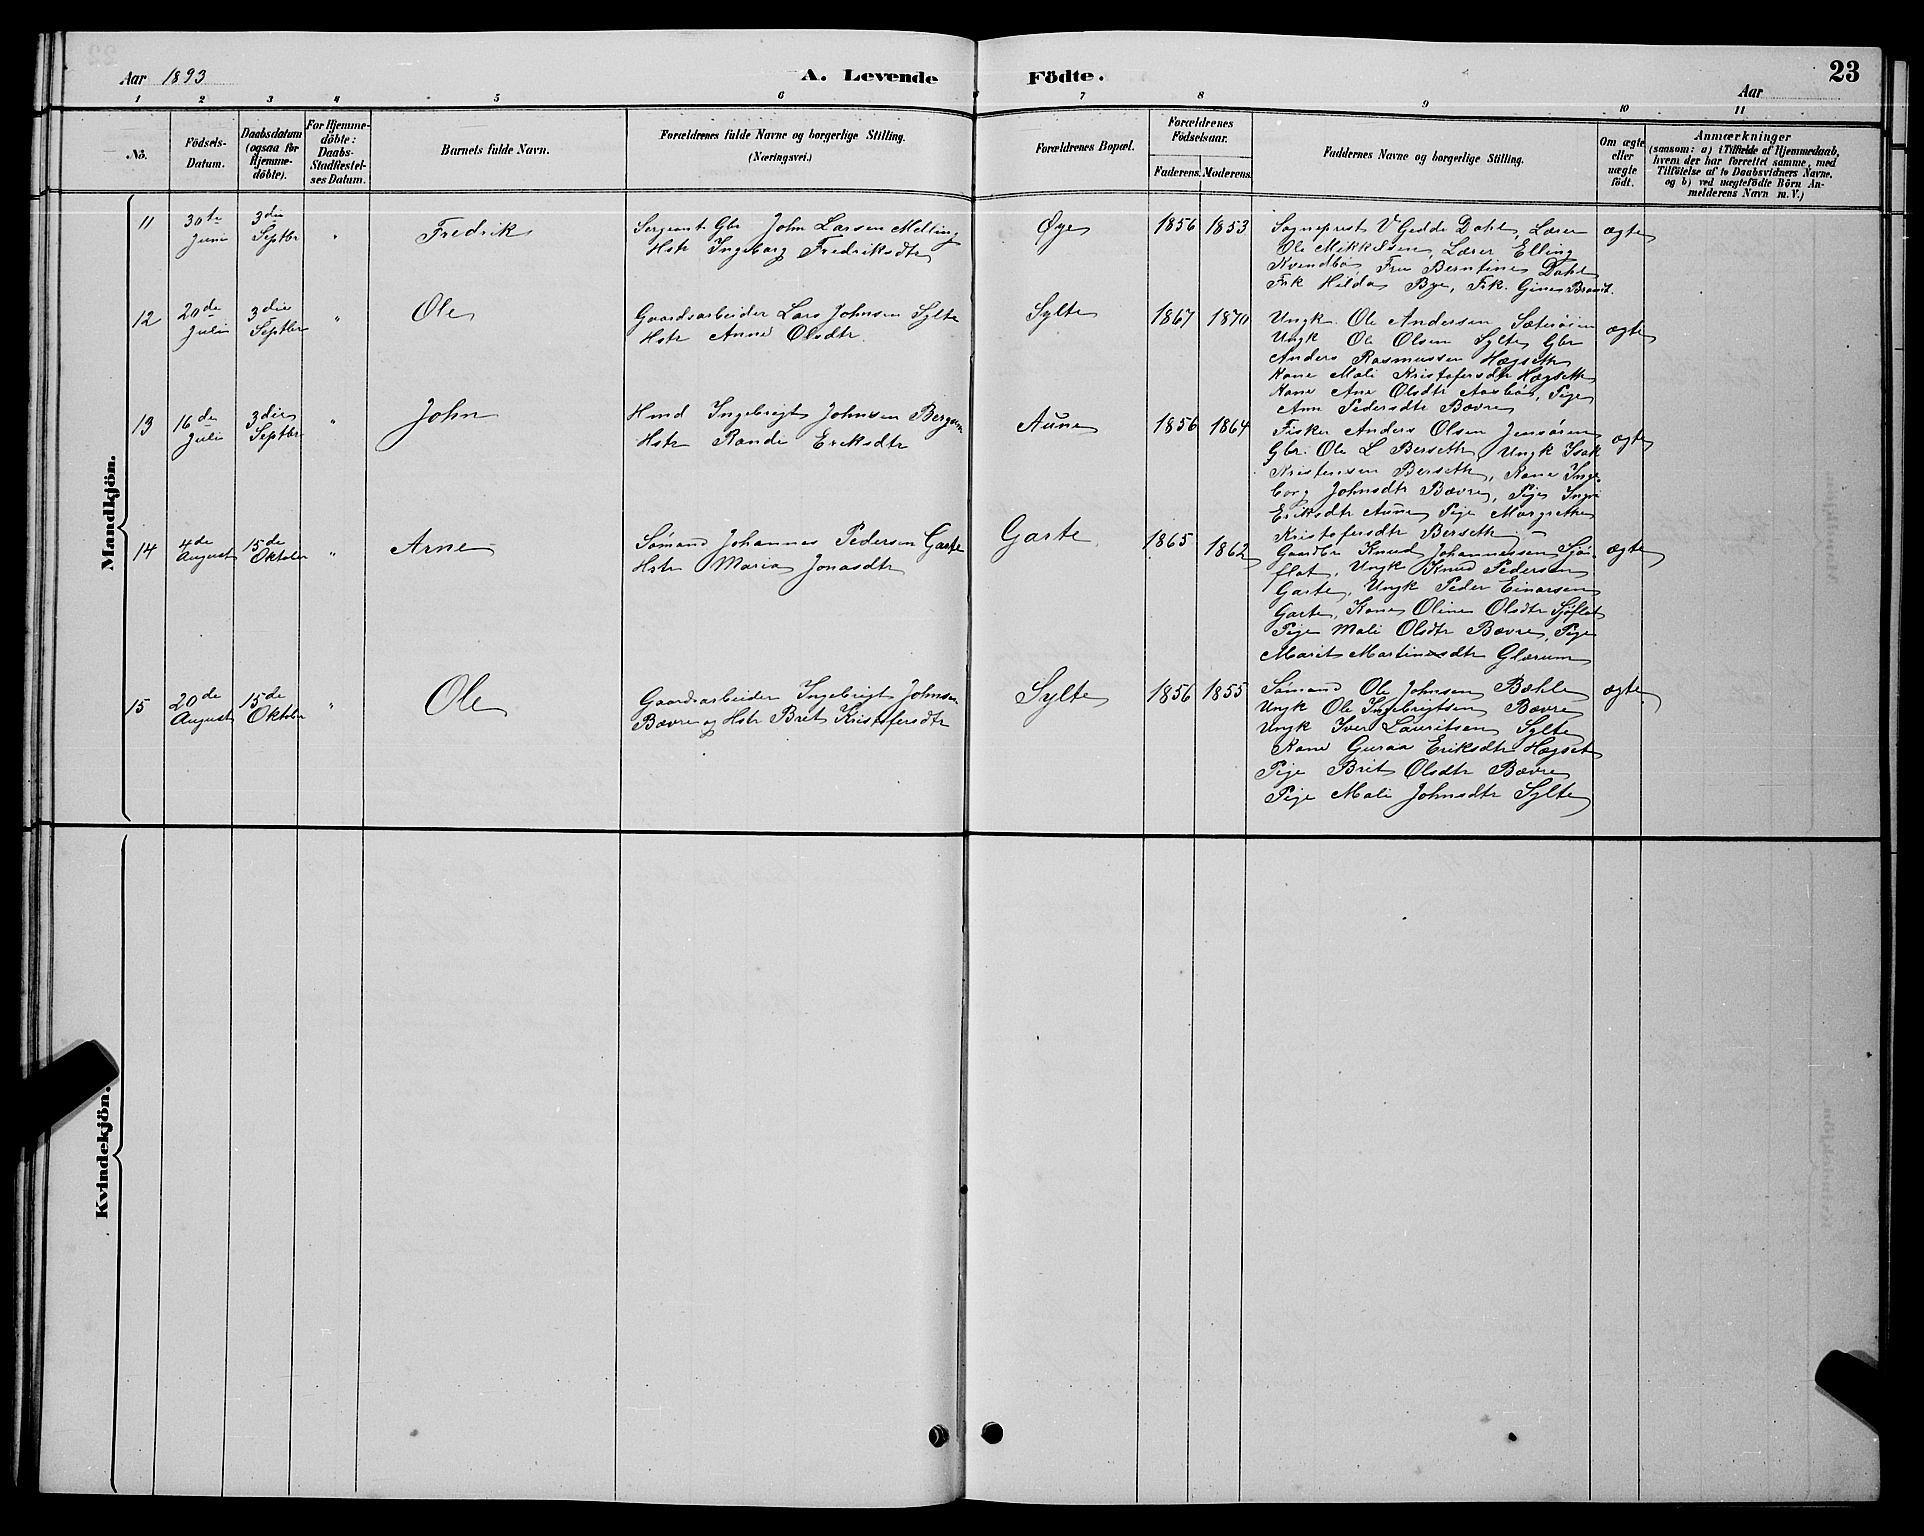 Aar 1893
A. Levende Födte.
Aar
23
1 2 3 4 5 6 7 8 9 10 11
Nö.
Födsels-Datum.
Daabsdatum (ogsaa for Hjemme-döbte).
For Hjemme-döbte: Daabs-Stadfæstel-ses Datum.
Barnets fulde Navn.
Forældrenes fulde Navne og borgerlige Stilling.
(Næringsvei.)
Forældrenes Bopæl.
Forældrenes Födselsaar.
Faderens. Moderens.
Faddernes Navne og borgerlige Stilling.
Om ægte eller uægte födt.
Anmærkninger
(saasom: a) i Tilfælde af Hjemmedaab,
hvem der har forrettet samme, med
Tilföielse af to Daabsvidners Navne.
og b) ved uægtefödte Börn An-
melderens Navn m. V.)
Mandkjön.
11
30te Juni
3die Septbr
"
Fredrik
Sergeant Gbr John Larsen Melling
Hstr Ingeborg Fredriksdtr
Øye
1856 1853
Sogneprest V Gedde Dahl, Lærer
Ole Mikkelsen, Lærer Elling
Kvendbø, Fru Berntine Dahl
Frk Hilda Bye, Frk. Gina Brandt.
ægte
12
20de Juli
3die Septbr
"
Ole
Gaardsarbeider Lars Johnsen Sylte
Hstr Anne Olsdtr
Sylte
1867 1870
Ungk. Ole Andersen Sæterøien
Ungk Ole Olsen Sylte, Gbr
Anders Rasmussen Hægseth
Kone Mali Kristofersdtr Hægseth
Kone Ane Olsdtr Aasbø, Pige
Ann Pedersdtr Bævre
ægte
13
16de Juli
3die Septbr
"
John
Hmd Ingebrigt Johnsen Bergem
Hstr Randi Eriksdtr
Aune
1856 1864
Fisker Anders Olsen Jensøien
Gbr. Ole L Berseth, Ungk Isak
Kristensen Berseth, Kone Inge-
borg Johnsdtr Bævre, Pige Ingri
Eriksdtr Aune Pige Margrethe
Kristofersdtr Berseth
ægte
14
4de August
15de Oktober
"
Arne
Sømand Johannes Pedersen Garte
Hstr Maria Jonasdtr
Garte
1865 1862
Gaardbr Knud Johannessen Sjø-
flot, Ungk Knud Pedersen
Garte, Ungk Peder Einarsen
Garte, Kone Oline Olsdtr Sjøflot
Pige Mali Olsdtr Bævre, Pige
Marit Martinesdtr Glærum
ægte
15
20de August
15de Oktober
"
Ole
Gaardsarbeider Ingebrigt Johnsen
Bævre og Hstr Bret Kristofersdtr
Sylte
1856 1855
Sømand Ole Johnsen Bæhle
Ungk Ole Ingebrigtsen Bævre
Ungk Iver Lauritsen Sylte
Kone Guraa Eriksdtr Hægset
Pige Brit Olsdtr Bævre
Pige Mali Johnsdtr Sylte
ægte
Kvindekjön.